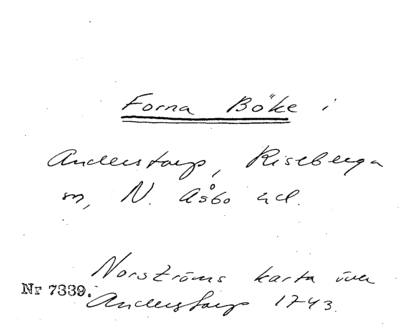 Forna Böke i
Anderstorp, Riseberga
sn, N. Åsbo hd.
Norströms karta över
Nr 7339.
Anderstorp 1743.